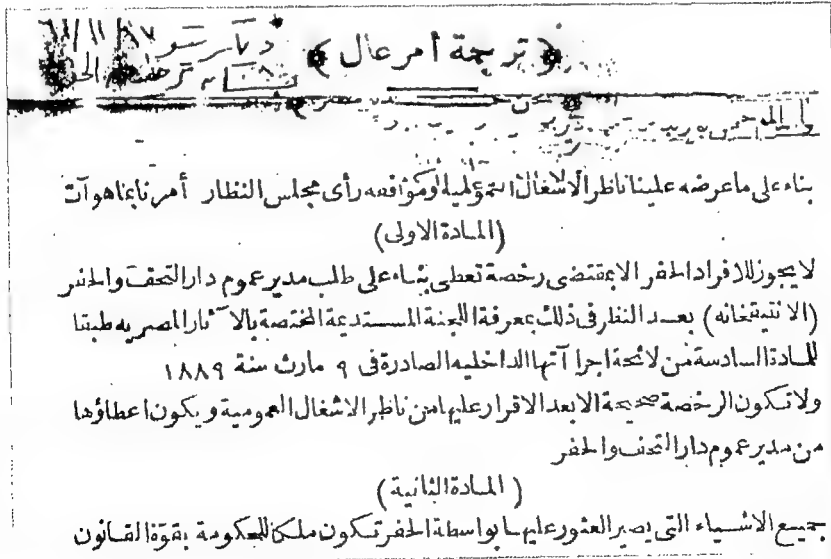 ﴿ ترجمة أمر عال ﴾
نحن خديو مصر
بناء على ما عرضه علينا ناظر الاشغال العمومية وموافقه رأى مجلس النظار أمرنا بما هو آت
(المادة الاولى)
لا يجوز للافراد الحفر الا بمقتضى رخصة تعطى بناء على طلب مدير عموم دار التحف والحفر
(الانتيقخانه) بعد النظر فى ذلك بمعرفة اللجنة المستديمة المختصة بالآثار المصريه طبقا
للمادة السادسة من لائحة اجرا آتها الداخليه الصادرة فى ٩ مارث سنة ١٨٨٩
ولا تكون الرخصة صحيحة الا بعد الاقرار عليها من ناظر الاشغال العمومية ويكون اعطاؤها
من مدير عموم دار التحف والحفر
(المادة الثانية)
جميع الاشياء التى يصير العثور عليها بواسطة الحفر تكون ملكا للحكومة بقوة القانون